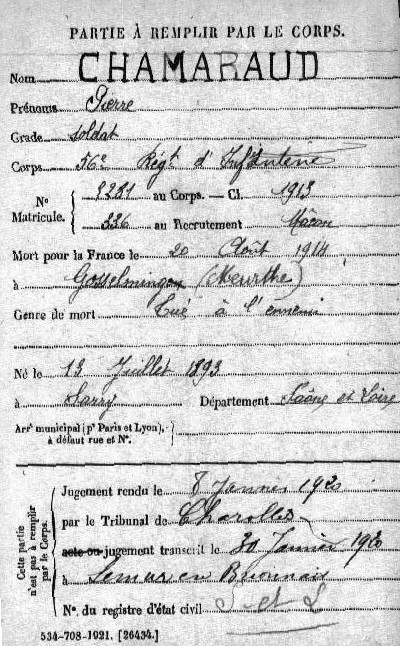 PARTIE À REMPLIR PAR LE CORPS.
Nom CHAMARAUD
Prénoms Pierre
Grade soldat
Corps 56e Régt d'Infanterie
No Matricule. { 3281 au Corps. — Cl. 1913
336 au Recrutement Mâcon
Mort pour la France le 20 Août 1914
à Gosselmingen (Meurthe)
Genre de mort Tué à l'ennemi
Né le 13 Juillet 1893
à Sarry Département Saône et Loire
Arrt municipal (pr Paris et Lyon), à défaut rue et No.
Cette partie n'est pas à remplir par le Corps.
Jugement rendu le 8 Janvier 1920
par le Tribunal de Charolles
acte ou jugement transcrit le 30 Janvier 1920
à Semur en Brionnais
No. du registre d'état civil S et L
534-708-1921. [26434.]